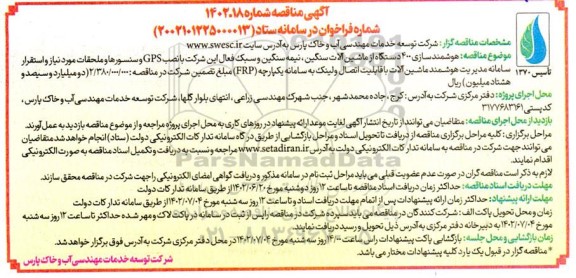 آگهی مناقصه شماره ۱۴۰۲.۱۸
شماره فراخوان در سامانه ستاد (۲۰۰۲۱۰۱۲۲۵۰۰۰۰۱۳)
تأسیس ۱۳۷۰
مشخصات مناقصه گزار: شرکت توسعه خدمات مهندسی آب و خاک پارس به آدرس سایت www.swesc.ir
موضوع مناقصه: هوشمندسازی ۴۰۰ دستگاه از ماشین آلات سنگین، نیمه سنگین و سبک فعال این شرکت با نصب GPS و سنسورها و ملحقات مورد نیاز و استقرار
سامانه مدیریت هوشمند ماشین آلات با قابلیت اتصال و لینک به سامانه یکپارچه (FRP) مبلغ تضمین شرکت در مناقصه: ۲/۳۸۰/۰۰۰/۰۰۰ (دو میلیارد و سیصد و
هشتاد میلیون) ریال
محل اجرای پروژه: دفتر مرکزی شرکت به آدرس: کرج، جاده محمدشهر، جنب شهرک مهندسی زراعی، انتهای بلوار گلها، شرکت توسعه خدمات مهندسی آب و خاک پارس،
کدپستی ۳۱۷۷۶۸۳۱۶۱
بازدید از محل اجرای مناقصه: متقاضیان می توانند از تاریخ انتشار آگهی لغایت موعد ارائه پیشنهاد در روزهای کاری به محل اجرای پروژه مراجعه و از موضوع مناقصه بازدید به عمل آورند.
مراحل برگزاری: کلیه مراحل برگزاری مناقصه از دریافت تا تحویل اسناد و مراحل بازگشایی از طریق درگاه سامانه تدارکات الکترونیکی دولت (ستاد) انجام خواهد شد متقاضیان
می توانند جهت شرکت در مناقصه به سامانه تدارکات الکترونیکی دولت به آدرس www.setadiran.ir مراجعه و نسبت به دریافت و تکمیل اسناد مناقصه به صورت الکترونیکی
اقدام نمایند.
لازم به ذکر است مناقصه گران در صورت عدم عضویت قبلی می باید مراحل ثبت نام در سامانه مذکور و دریافت گواهی امضای الکترونیکی را جهت شرکت در مناقصه محقق سازند.
مهلت دریافت اسناد مناقصه: حداکثر زمان دریافت اسناد مناقصه تا ساعت ۱۲ روز دوشنبه مورخ ۱۴۰۲/۰۶/۲۰ از طریق سامانه تدارکات دولت
مهلت ارائه پیشنهاد: حداکثر زمان ارائه پیشنهادات پس از اتمام مهلت دریافت اسناد و تا ساعت ۱۲ روز سه شنبه مورخ ۱۴۰۲/۰۷/۰۴ از طریق سامانه تدارکات دولت
زمان و محل تحویل پاکت الف: شرکت کنندگان در مناقصه می باید سپرده شرکت در مناقصه را پس از ثبت در سامانه در پاکت لاک و مهر شده حداکثر تا ساعت ۱۲ روز سه شنبه
مورخ ۱۴۰۲/۰۷/۰۴ به دبیرخانه دفتر مرکزی به آدرس ذیل تحویل و رسید دریافت نمایند.
زمان بازگشایی و محل جلسه: بازگشایی پاکت پیشنهادات رأس ساعت ۱۴:۰۰ روز سه شنبه مورخ ۱۴۰۲/۰۷/۰۴ در محل دفتر مرکزی شرکت به آدرس فوق برگزار خواهد شد.
* مناقصه گزار در قبول یک یا رد کلیه پیشنهادات مختار می باشد.
شرکت توسعه خدمات مهندسی آب و خاک پارس
ParsNamadData